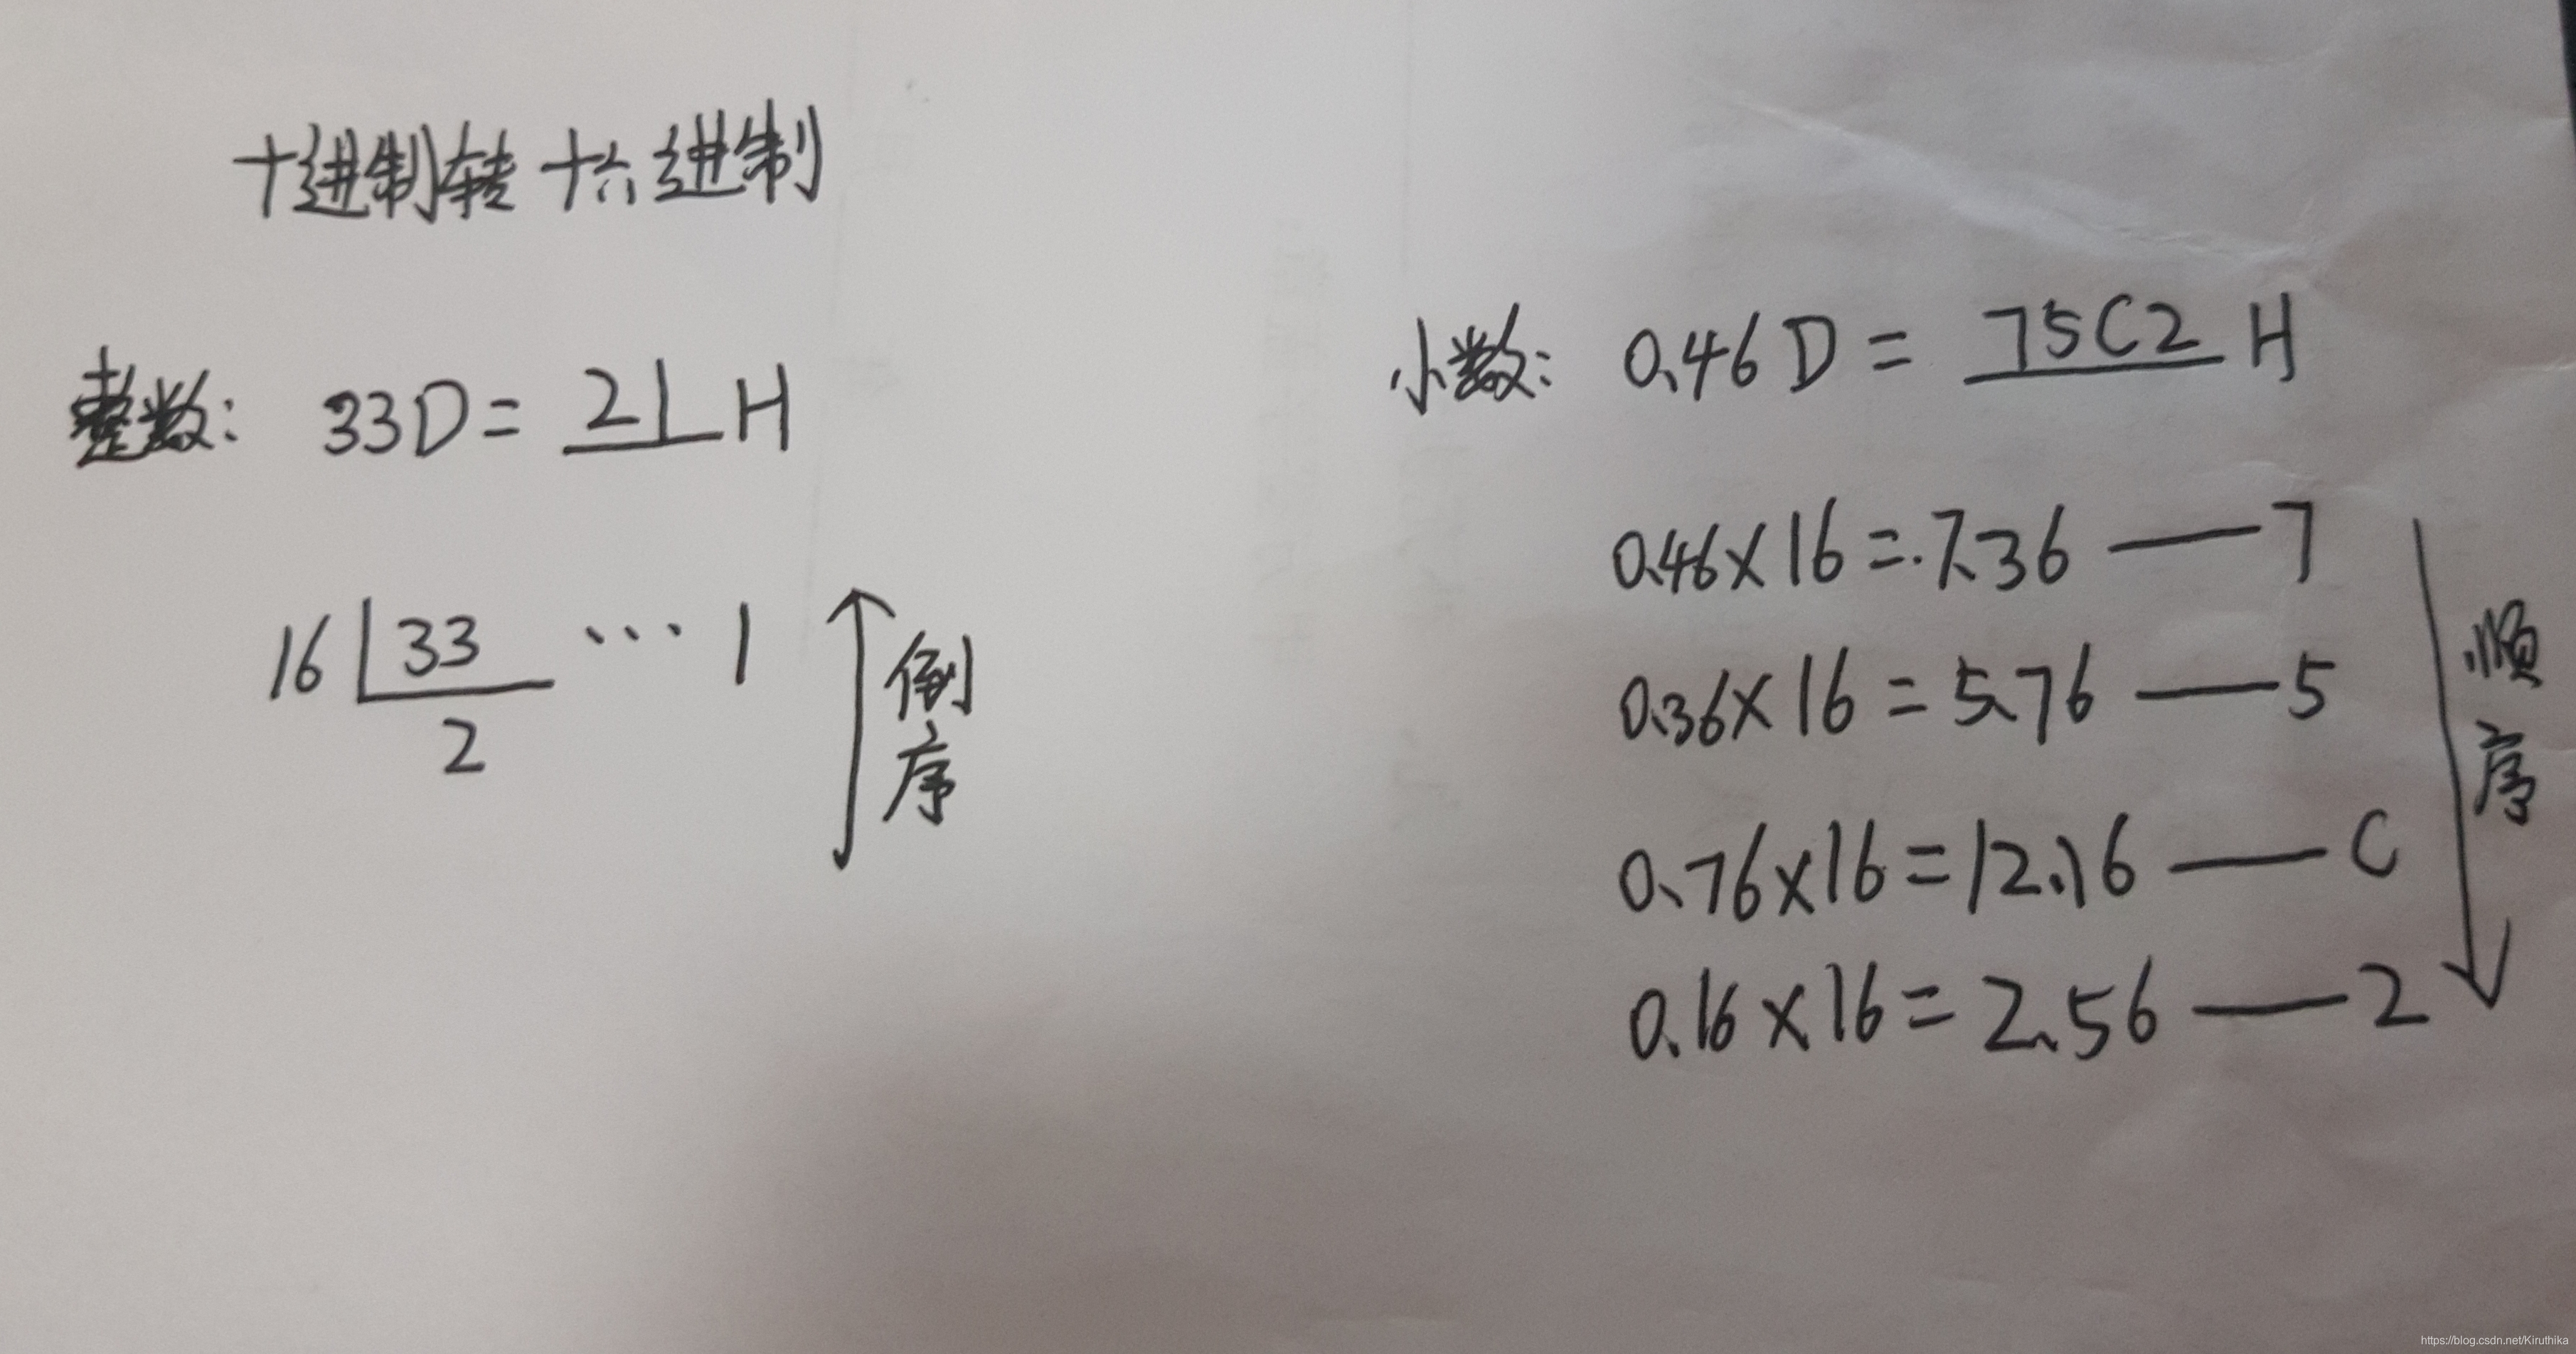 十进制转十六进制
整数: 33D = 21 H
16 33 ··· 1
2
倒序
小数: 0.46D = 75C2 H
0.46×16=7.36 — 7
0.36×16=5.76 — 5
0.76×16=12.16 — C
0.16×16=2.56 — 2
顺序
https://blog.csdn.net/Kiruthika